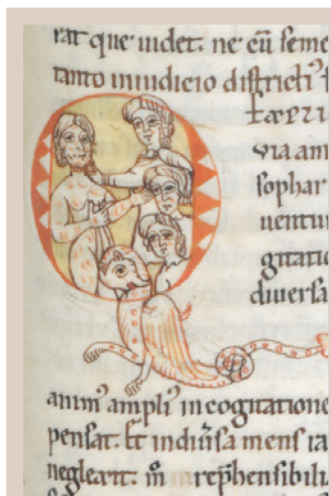 rat que uidet. ne cū seme
tanto in iudicio districti
Quia am
sophar
uentu
gitatio
diuersa
anim̄ ampli᾽ in cogitatione
pensat. Et indiuisa mens ia
neglexit. m̄ rep̄hensibili